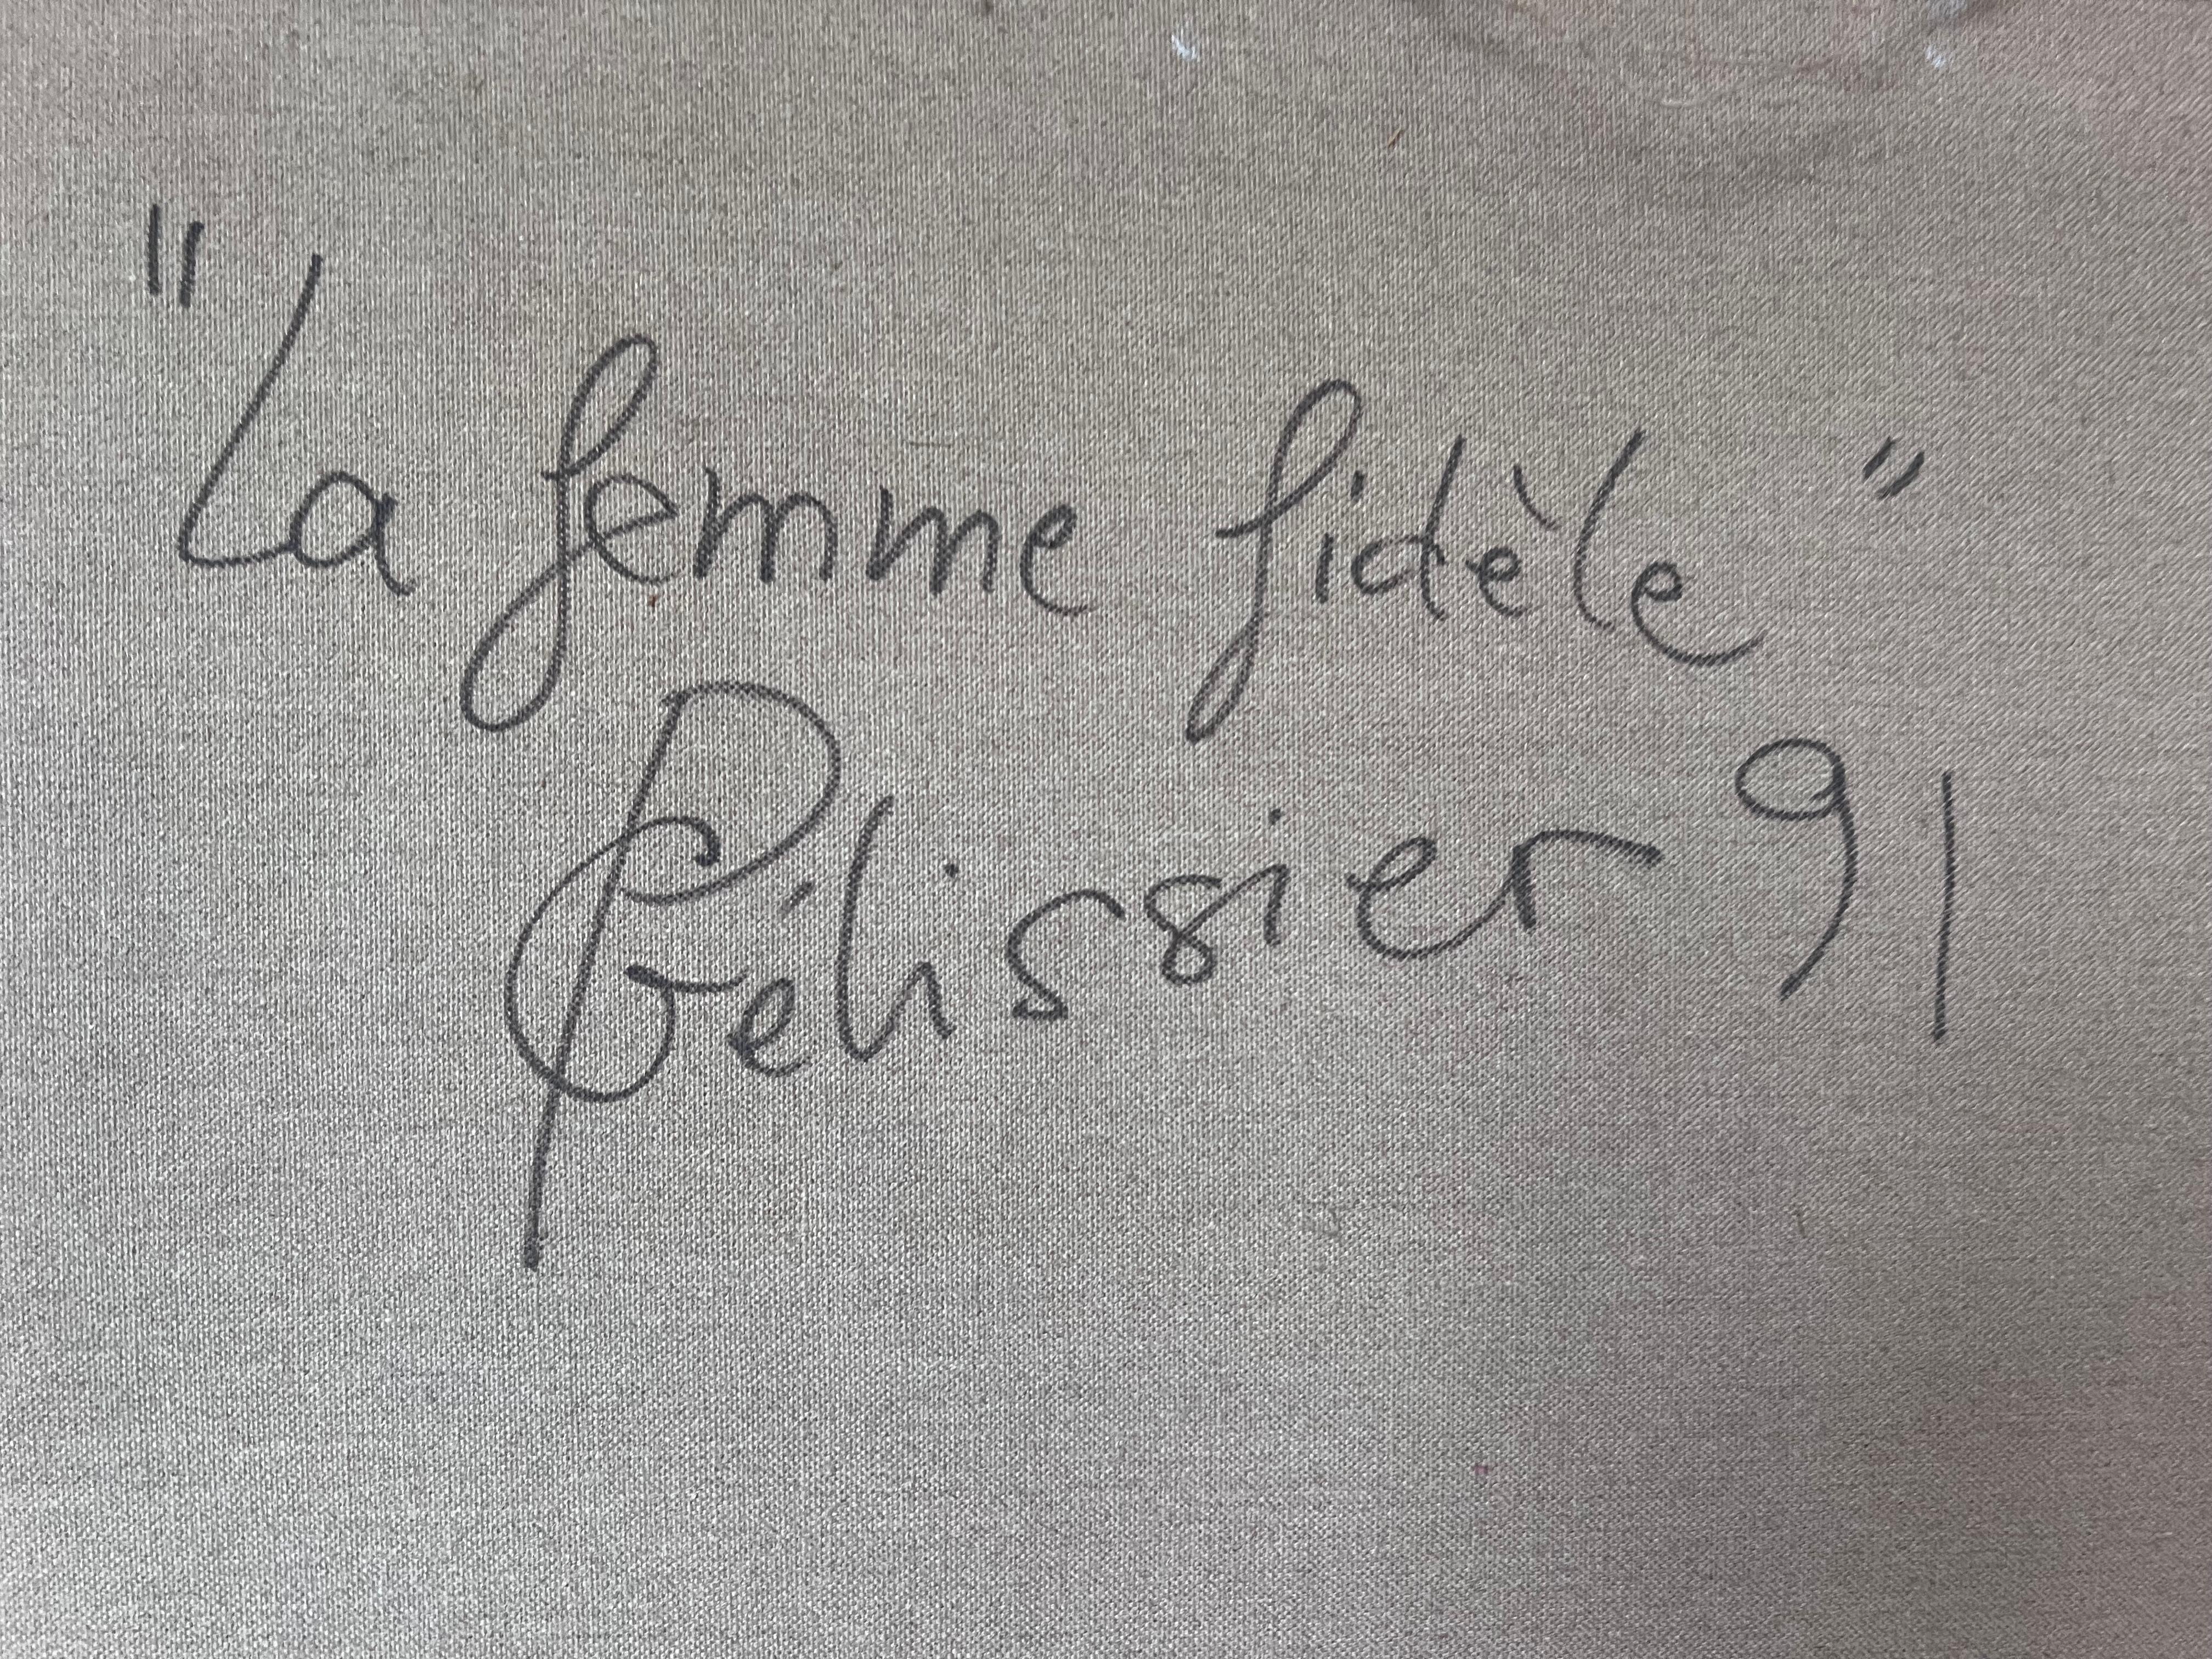 "La femme fidèle"
Pélissier 91